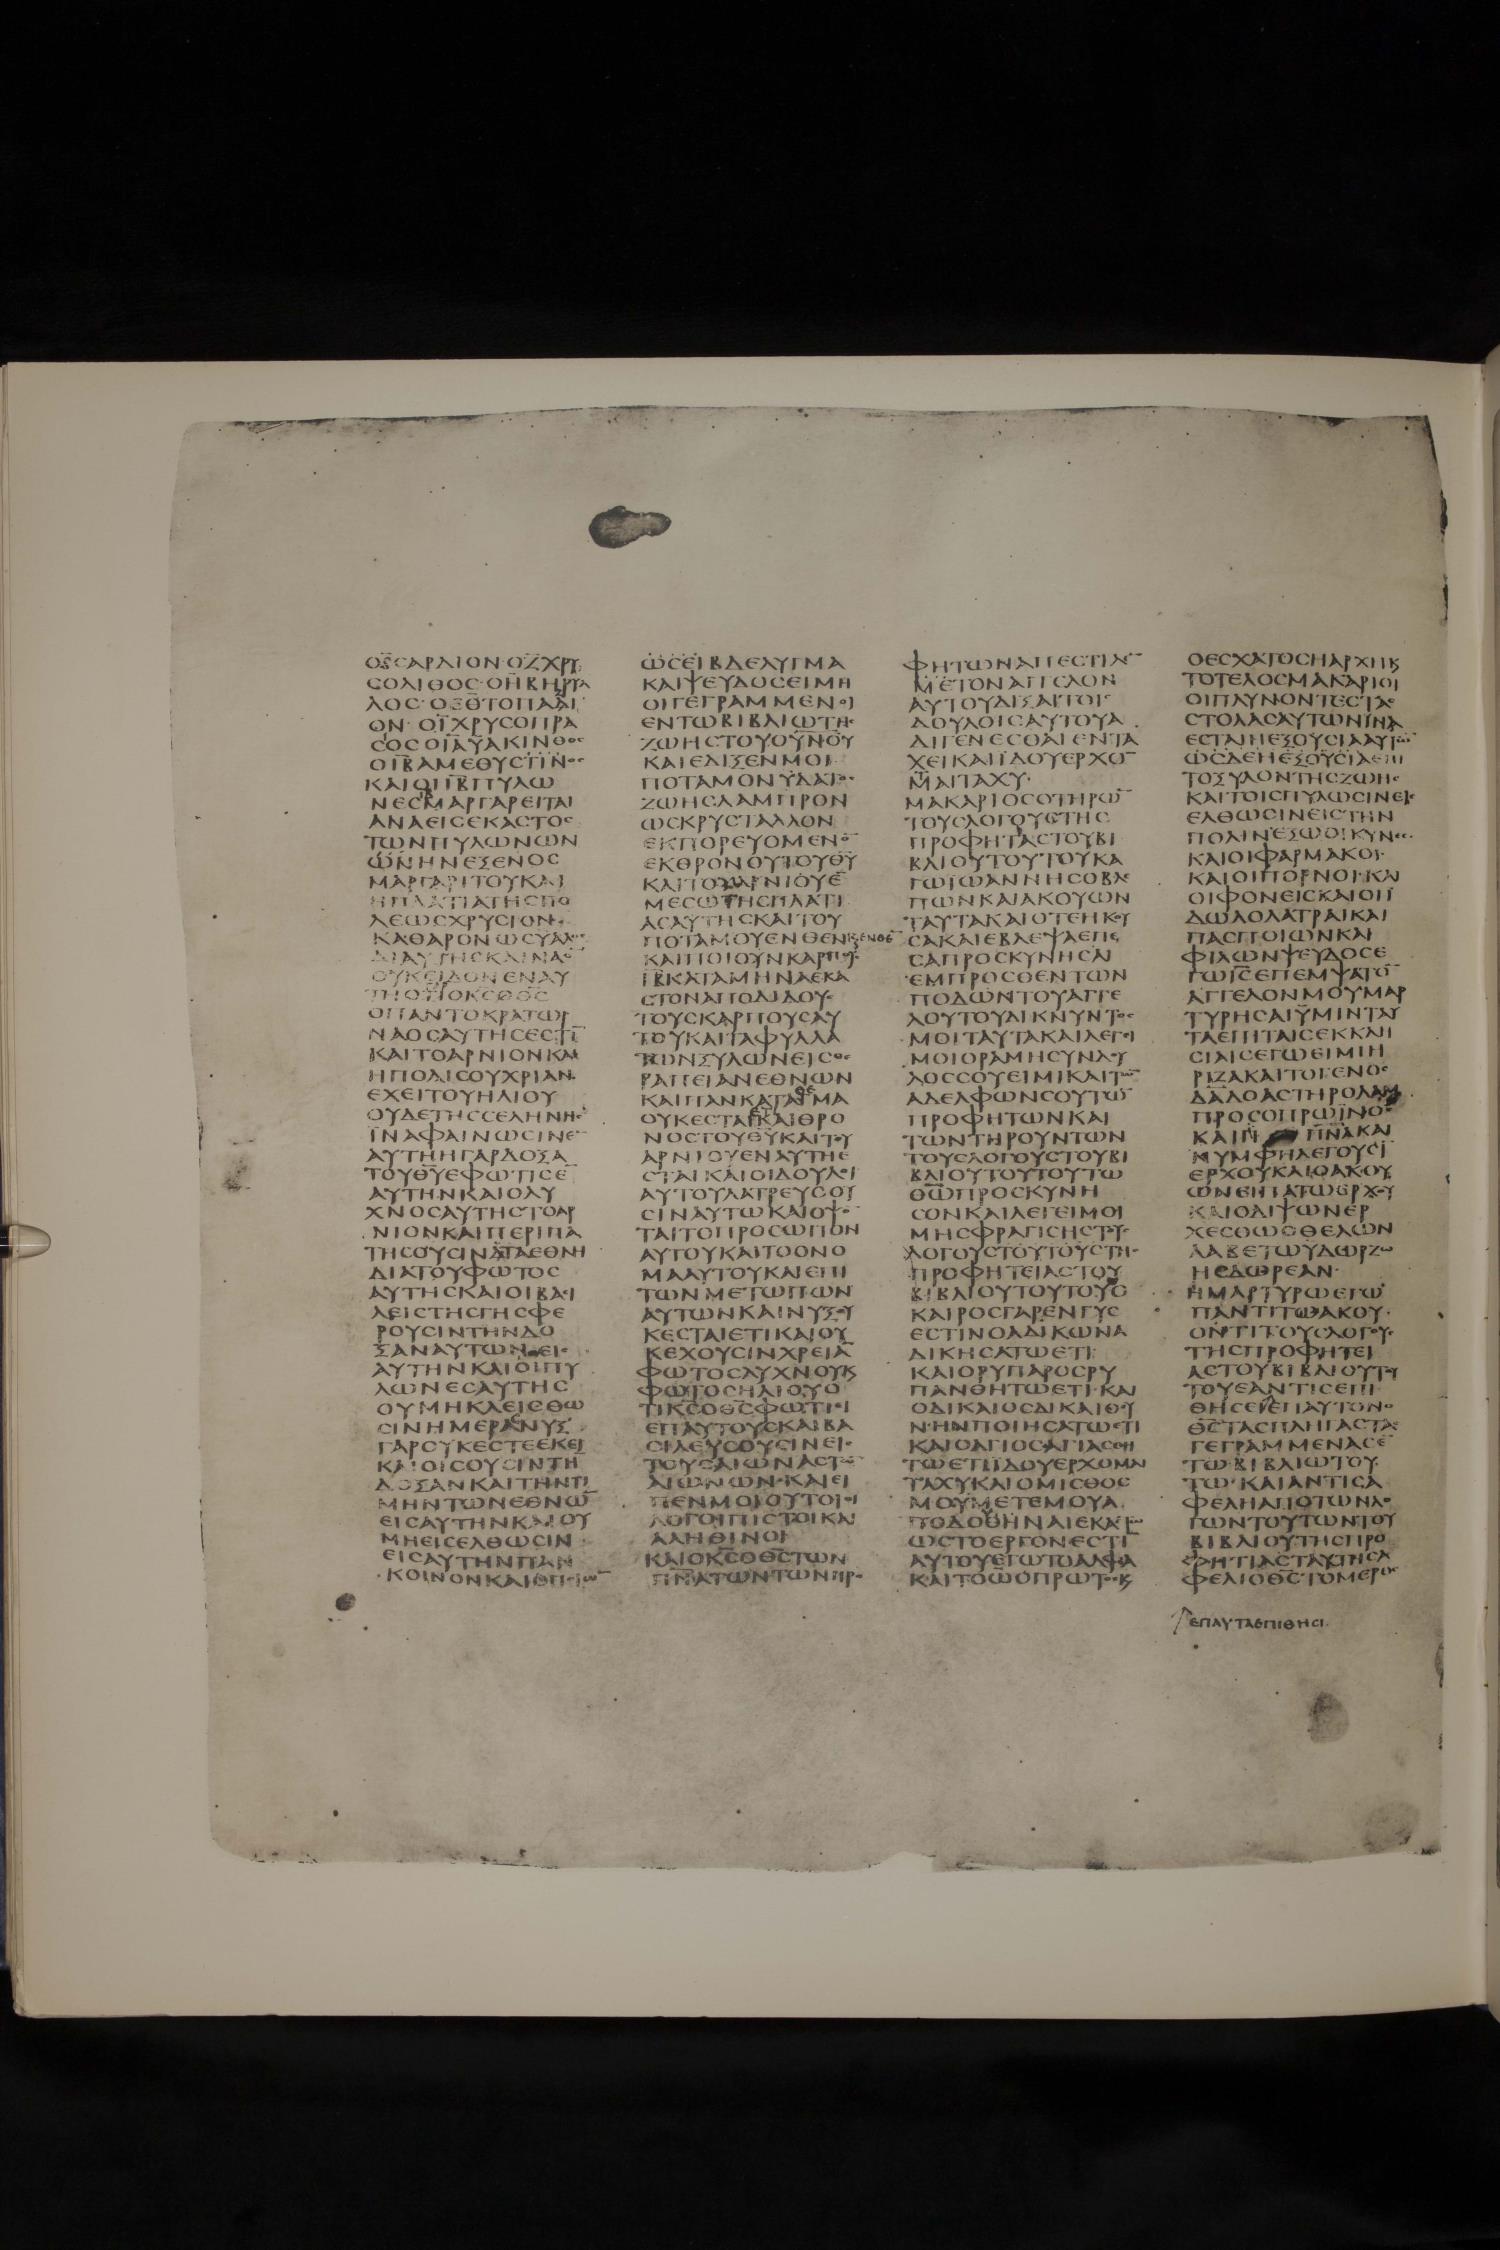 ΟϚ̅ΣΑΡΔΙΟΝ·ΟΖ̅ΧΡΥ
ϹΟΛΙΘΟϹ·ΟΗ̅ΒΗΡΥΛ
ΛΟϹ·ΟΘ̅ΤΟΠΑΔΙ
ΟΝ·ΟΙ̅ΧΡΥϹΟΠΡΑ
ϹΟϹΟΙΑ̅ΥΑΚΙΝΘΟϹ
ΟΙΒ̅ΑΜΕΘΥϹΤΙΝΟϹ
ΚΑΙΟΙΙΒ̅ΠΥΛΩ
ΝΕϹΜΑΡΓΑΡΕΙΤΑΙ
ΑΝΑΕΙϹΕΚΑϹΤΟϹ
ΤΩΝΠΥΛΩΝΩΝ
ΩΝΗΝΕΞΕΝΟϹ
ΜΑΡΓΑΡΙΤΟΥΚΑΙ
ΗΠΛΑΤΙΑΤΗϹΠΟ
ΛΕΩϹΧΡΥϹΙΟΝ
ΚΑΘΑΡΟΝΩϹΥΑΛΟϹ
ΔΙΑΥΓΗϹΚΑΙΝΑΟ̅
ΟΥΚΕΙΔΟΝΕΝΑΥ
ΤΗΟΤΙΟΚ̅Ϲ̅ΟΘ̅Ϲ̅
ΟΠΑΝΤΟΚΡΑΤΩΡ
ΝΑΟϹΑΥΤΗϹΕϹΤΙ̅
ΚΑΙΤΟΑΡΝΙΟΝΚΑΙ
ΗΠΟΛΙϹΟΥΧΡΙΑΝ
ΕΧΕΙΤΟΥΗΛΙΟΥ
ΟΥΔΕΤΗϹϹΕΛΗΝΗϹ
ΙΝΑΦΑΙΝΩϹΙΝΕ̅
ΑΥΤΗΗΓΑΡΔΟΞΑ
ΤΟΥΘ̅Υ̅ΕΦΩΤΙϹΕ̅
ΑΥΤΗΝΚΑΙΟΛΥ
ΧΝΟϹΑΥΤΗϹΤΟΑΡ
ΝΙΟΝΚΑΙΠΕΡΙΠΑ
ΤΗϹΟΥϹΙΝΤΑΕΘΝΗ
ΔΙΑΤΟΥΦΩΤΟϹ
ΑΥΤΗϹΚΑΙΟΙΒΑϹΙ
ΛΕΙϹΤΗϹΓΗϹΦΕ
ΡΟΥϹΙΝΤΗΝΔΟ
ΞΑΝΑΥΤΩΝΕΙϹ
ΑΥΤΗΝΚΑΙΟΙΠΥ
ΛΩΝΕϹΑΥΤΗϹ
ΟΥΜΗΚΛΕΙϹΘΩ
ϹΙΝΗΜΕΡΑϹΝΥΞ
ΓΑΡΟΥΚΕϹΤΕΕΚΕΙ
ΚΑΙΟΙϹΟΥϹΙΝΤΗ
ΔΟΞΑΝΚΑΙΤΗΝΤΙ
ΜΗΝΤΩΝΕΘΝΩ̅
ΕΙϹΑΥΤΗΝΚΑΙΟΥ
ΜΗΕΙϹΕΛΘΩϹΙΝ
ΕΙϹΑΥΤΗΝΠΑΝ
ΚΟΙΝΟΝΚΑΙΟΠΟΙΩ̅
ΩϹΕΙΒΔΕΛΥΓΜΑ
ΚΑΙΨΕΥΔΟϹΕΙΜΗ
ΟΙΓΕΓΡΑΜΜΕΝΟΙ
ΕΝΤΩΒΙΒΛΙΩΤΗϹ
ΖΩΗϹΤΟΥΟΥΝΟΥ
ΚΑΙΕΔΙΞΕΝΜΟΙ
ΠΟΤΑΜΟΝΥΔΑΤΟϹ
ΖΩΗϹΛΑΜΠΡΟΝ
ΩϹΚΡΥϹΤΑΛΛΟΝ
ΕΚΠΟΡΕΥΟΜΕΝΟ̅
ΕΚΘΡΟΝΟΥΤΟΥΘ̅Υ̅
ΚΑΙΤΟΥΑΡΝΙΟΥΕ̅
ΜΕϹΩΤΗϹΠΛΑΤΙ
ΑϹΑΥΤΗϹΚΑΙΤΟΥ
ΠΟΤΑΜΟΥΕΝΘΕΝΚΕΝΘΕ̅
ΚΑΙΠΟΙΟΥΝΚΑΡΠΟΥϹ
ΙΒ̅ΚΑΤΑΜΗΝΑΕΚΑ
ϹΤΟΝΑΠΟΔΙΔΟΥϹ
ΤΟΥϹΚΑΡΠΟΥϹΑΥ
ΤΟΥΚΑΙΤΑΦΥΛΛΑ
ΤΩΝΞΥΛΩΝΕΙϹΘΕ
ΡΑΠΕΙΑΝΕΘΝΩΝ
ΚΑΙΠΑΝΚΑΤΑΘΕΜΑ
ΟΥΚΕϹΤΑΙΕΤΙΚΑΙΘΡΟ
ΝΟϹΤΟΥΘ̅Υ̅ΚΑΙΤΟΥ
ΑΡΝΙΟΥΕΝΑΥΤΗΕ
ϹΤΑΙΚΑΙΟΙΔΟΥΛΟΙ
ΑΥΤΟΥΛΑΤΡΕΥϹΟΥ
ϹΙΝΑΥΤΩΚΑΙΟΨΟ̅
ΤΑΙΤΟΠΡΟϹΩΠΟΝ
ΑΥΤΟΥΚΑΙΤΟΟΝΟ
ΜΑΑΥΤΟΥΚΑΙΕΠΙ
ΤΩΝΜΕΤΩΠΩΝ
ΑΥΤΩΝΚΑΙΝΥΞΟΥ
ΚΕϹΤΑΙΕΤΙΚΑΙΟΥ
ΚΕΧΟΥϹΙΝΧΡΕΙΑ̅
ΦΩΤΟϹΛΥΧΝΟΥΚ
ΦΩΤΟϹΗΛΙΟΥΟ
ΤΙΚ̅Ϲ̅ΟΘ̅Ϲ̅ΦΩΤΙΕΙ
ΕΠΑΥΤΟΥϹΚΑΙΒΑ
ϹΙΛΕΥϹΟΥϹΙΝΕΙϹ
ΤΟΥϹΑΙΩΝΑϹΤΩ̅
ΑΙΩΝΩΝ·ΚΑΙΕΙ
ΠΕΝΜΟΙΟΥΤΟΙΟΙ
ΛΟΓΟΙΠΙϹΤΟΙΚΑΙ
ΑΛΗΘΙΝΟΙ
ΚΑΙΟΚ̅Ϲ̅ΟΘ̅Ϲ̅ΤΩΝ
Π̅Ν̅ΑΤΩΝΤΩΝΠΡΟ
ΦΗΤΩΝΑΠΕϹΤΙΛΕ̅
ΜΕΤΟΝΑΓΓΕΛΟΝ
ΑΥΤΟΥΔΙΞΑΙΤΟΙϹ
ΔΟΥΛΟΙϹΑΥΤΟΥΑ
ΔΙΓΕΝΕϹΘΑΙΕΝΤΑ
ΧΕΙΚΑΙΙΔΟΥΕΡΧΟ̅
ΜΑΙΤΑΧΥ·
ΜΑΚΑΡΙΟϹΟΤΗΡΩ̅
ΤΟΥϹΛΟΓΟΥϹΤΗϹ
ΠΡΟΦΗΤΑϹΤΟΥΒΙ
ΒΛΙΟΥΤΟΥΤΟΥΚΑ
ΓΩΙΩΑΝΝΗϹΟΒΛΕ
ΠΩΝΚΑΙΑΚΟΥΩΝ
ΤΑΥΤΑΚΑΙΟΤΕΗΚΟΥ
ϹΑΚΑΙΕΒΛΕΨΑΕΠΕ
ϹΑΠΡΟϹΚΥΝΗϹΑΙ
ΕΜΠΡΟϹΘΕΝΤΩΝ
ΠΟΔΩΝΤΟΥΑΓΓΕ
ΛΟΥΤΟΥΔΙΚΝΥΝΤΟϹ
ΜΟΙΤΑΥΤΑΚΑΙΛΕΓΕΙ
ΜΟΙΟΡΑΜΗϹΥΝΔΟΥ
ΛΟϹϹΟΥΕΙΜΙΚΑΙΤΩ̅
ΑΔΕΛΦΩΝϹΟΥΤΩ̅
ΠΡΟΦΗΤΩΝΚΑΙ
ΤΩΝΤΗΡΟΥΝΤΩΝ
ΤΟΥϹΛΟΓΟΥϹΤΟΥΒΙ
ΒΛΙΟΥΤΟΥΤΟΥΤΩ
Θ̅Ω̅ΠΡΟϹΚΥΝΗ
ϹΟΝΚΑΙΛΕΓΕΙΜΟΙ
ΜΗϹΦΡΑΓΙϹΗϹΤΟΥϹ
ΛΟΓΟΥϹΤΟΥΤΟΥϹΤΗϹ
ΠΡΟΦΗΤΕΙΑϹΤΟΥ
ΒΙΒΛΙΟΥΤΟΥΤΟΥΟ
ΚΑΙΡΟϹΓΑΡΕΝΓΥϹ
ΕϹΤΙΝΟΑΔΙΚΩΝΑ
ΔΙΚΗϹΑΤΩΕΤΙ·
ΚΑΙΟΡΥΠΑΡΟϹΡΥ
ΠΑΝΘΗΤΩΕΤΙ·ΚΑΙ
ΟΔΙΚΑΙΟϹΔΙΚΑΙΟϹΥ
ΝΗΝΠΟΙΗϹΑΤΩΕΤΙ
ΚΑΙΟΑΓΙΟϹΑΓΙΑϹΘΗ
ΤΩΕΤΙΙΔΟΥΕΡΧΟΜΑΙ
ΤΑΧΥΚΑΙΟΜΙϹΘΟϹ
ΜΟΥΜΕΤΕΜΟΥΑ
ΠΟΔΟΘΗΝΑΙΕΚΑϹΤΩ
ΩϹΤΟΕΡΓΟΝΕϹΤΙ̅
ΑΥΤΟΥΕΓΩΤΟΑΛΦΑ
ΚΑΙΤΟΩ̅ΟΠΡΩΤΟϹΚ
ΟΕϹΧΑΤΟϹΗΑΡΧΗΚ
ΤΟΤΕΛΟϹΜΑΚΑΡΙΟΙ
ΟΙΠΛΥΝΟΝΤΕϹΤΑϹ
ϹΤΟΛΑϹΑΥΤΩΝΙΝΑ
ΕϹΤΑΙΗΕΞΟΥϹΙΑΑΥΤΩ̅
ΩϹΔΕΗΕΞΟΥϹΙΑΕΠΙ
ΤΟΞΥΛΟΝΤΗϹΖΩΗϹ
ΚΑΙΤΟΙϹΠΥΛΩϹΙΝΕΙϹ
ΕΛΘΩϹΙΝΕΙϹΤΗΝ
ΠΟΛΙΝΕΞΩΟΙΚΥΝΕϹ
ΚΑΙΟΙΦΑΡΜΑΚΟΙ·
ΚΑΙΟΙΠΟΡΝΟΙ·ΚΑΙ
ΟΙΦΟΝΕΙϹΚΑΙΟΙΙ
ΔΩΛΟΛΑΤΡΑΙΚΑΙ
ΠΑϹΠΟΙΩΝΚΑΙ
ΦΙΛΩΝΨΕΥΔΟϹΕ
ΓΩΙ̅Ϲ̅ΕΠΕΜΨΑΤΟ̅
ΑΓΓΕΛΟΝΜΟΥΜΑΡ
ΤΥΡΗϹΑΙΥΜΙΝΤΑΥ
ΤΑΕΠΙΤΑΙϹΕΚΚΛΗ
ϹΙΑΙϹΕΓΩΕΙΜΙΗ
ΡΙΖΑΚΑΙΤΟΓΕΝΟϹ
ΔΑ̅Δ̅ΑΛΟΑϹΤΗΡΟΛΑΜ
ΠΡΟϹΟΠΡΩΙΝΟϹ
ΝΥΜΦΗΛΕΓΟΥϹΙ̅
ΕΡΧΟΥΚΑΙΟΑΚΟΥ
ΩΝΕΙΠΑΤΩΕΡΧΟΥ
ΚΑΙΟΔΙΨΩΝΕΡ
ΧΕϹΘΩΟΘΕΛΩΝ
ΛΑΒΕΤΩΥΔΩΡΖΩ
ΗϹΔΩΡΕΑΝ·
ΜΑΡΤΥΡΩΕΓΩ
ΠΑΝΤΙΤΩΑΚΟΥ
ΟΝΤΙΤΟΥϹΛΟΓΟΥϹ
ΤΗϹΠΡΟΦΗΤΕΙ
ΑϹΤΟΥΒΙΒΛΙΟΥΤΟΥ
ΤΟΥΕΑΝΤΙϹΕΠΙ
ΘΗϹΕΙΕΠΑΥΤΟΝΟ
Θ̅Ϲ̅ΤΑϹΠΛΗΓΑϹΤΑϹ
ΓΕΓΡΑΜΜΕΝΑϹΕ̅
ΤΩΒΙΒΛΙΩΤΟΥ
ΤΩ·ΚΑΙΑΝΤΙϹΑ
ΦΕΛΗΑΠΟΤΩΝΛΟ
ΓΩΝΤΟΥΤΩΝΤΟΥ
ΒΙΒΛΙΟΥΤΗϹΠΡΟ
ΦΗΤΙΑϹΤΑΥΤΗϹΑ
ΦΕΛΙΟΘ̅Ϲ̅ΤΟΜΕΡΟϹ
ΕΠΑΥΤΑΕΠΙΘΗϹΙ